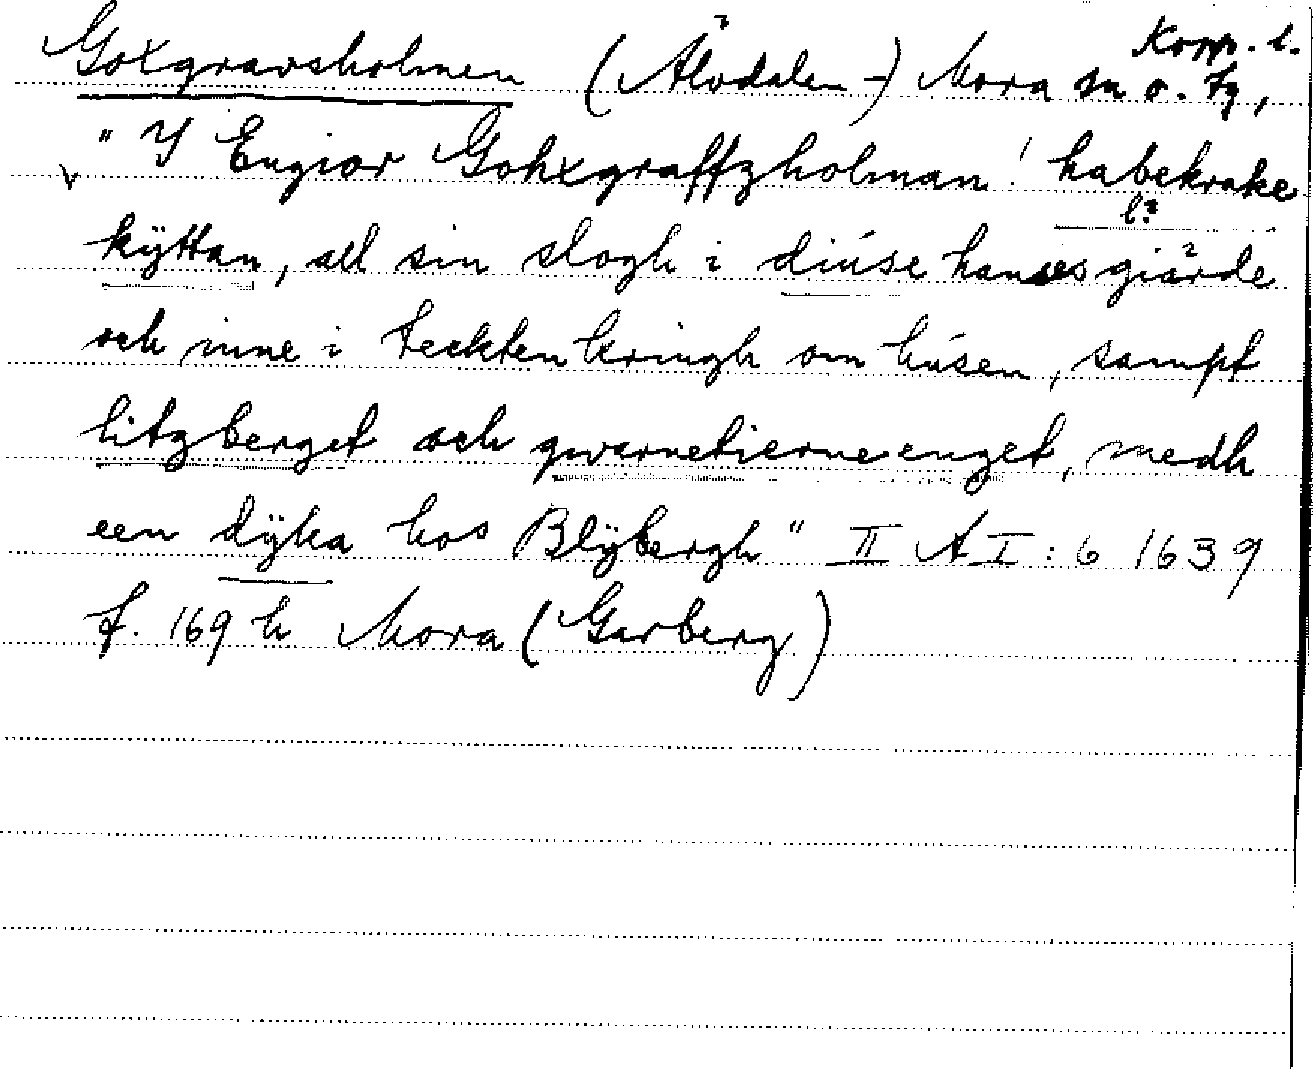 Kopp. l.
Goxgravsholmen (Älvdalen-) Mora sn o. tg,
" Y Engior Gohxgraffzholman! habekrake
l?
kÿttan, all sin slogh i diúse hanses giärde
och inne i teckten kringh om húsen, sampt
litzberget och qwarnetierne enget, medh
een dÿka hos Blÿbergh" II A I : 6 1639
f. 169 h Mora (Garberg)